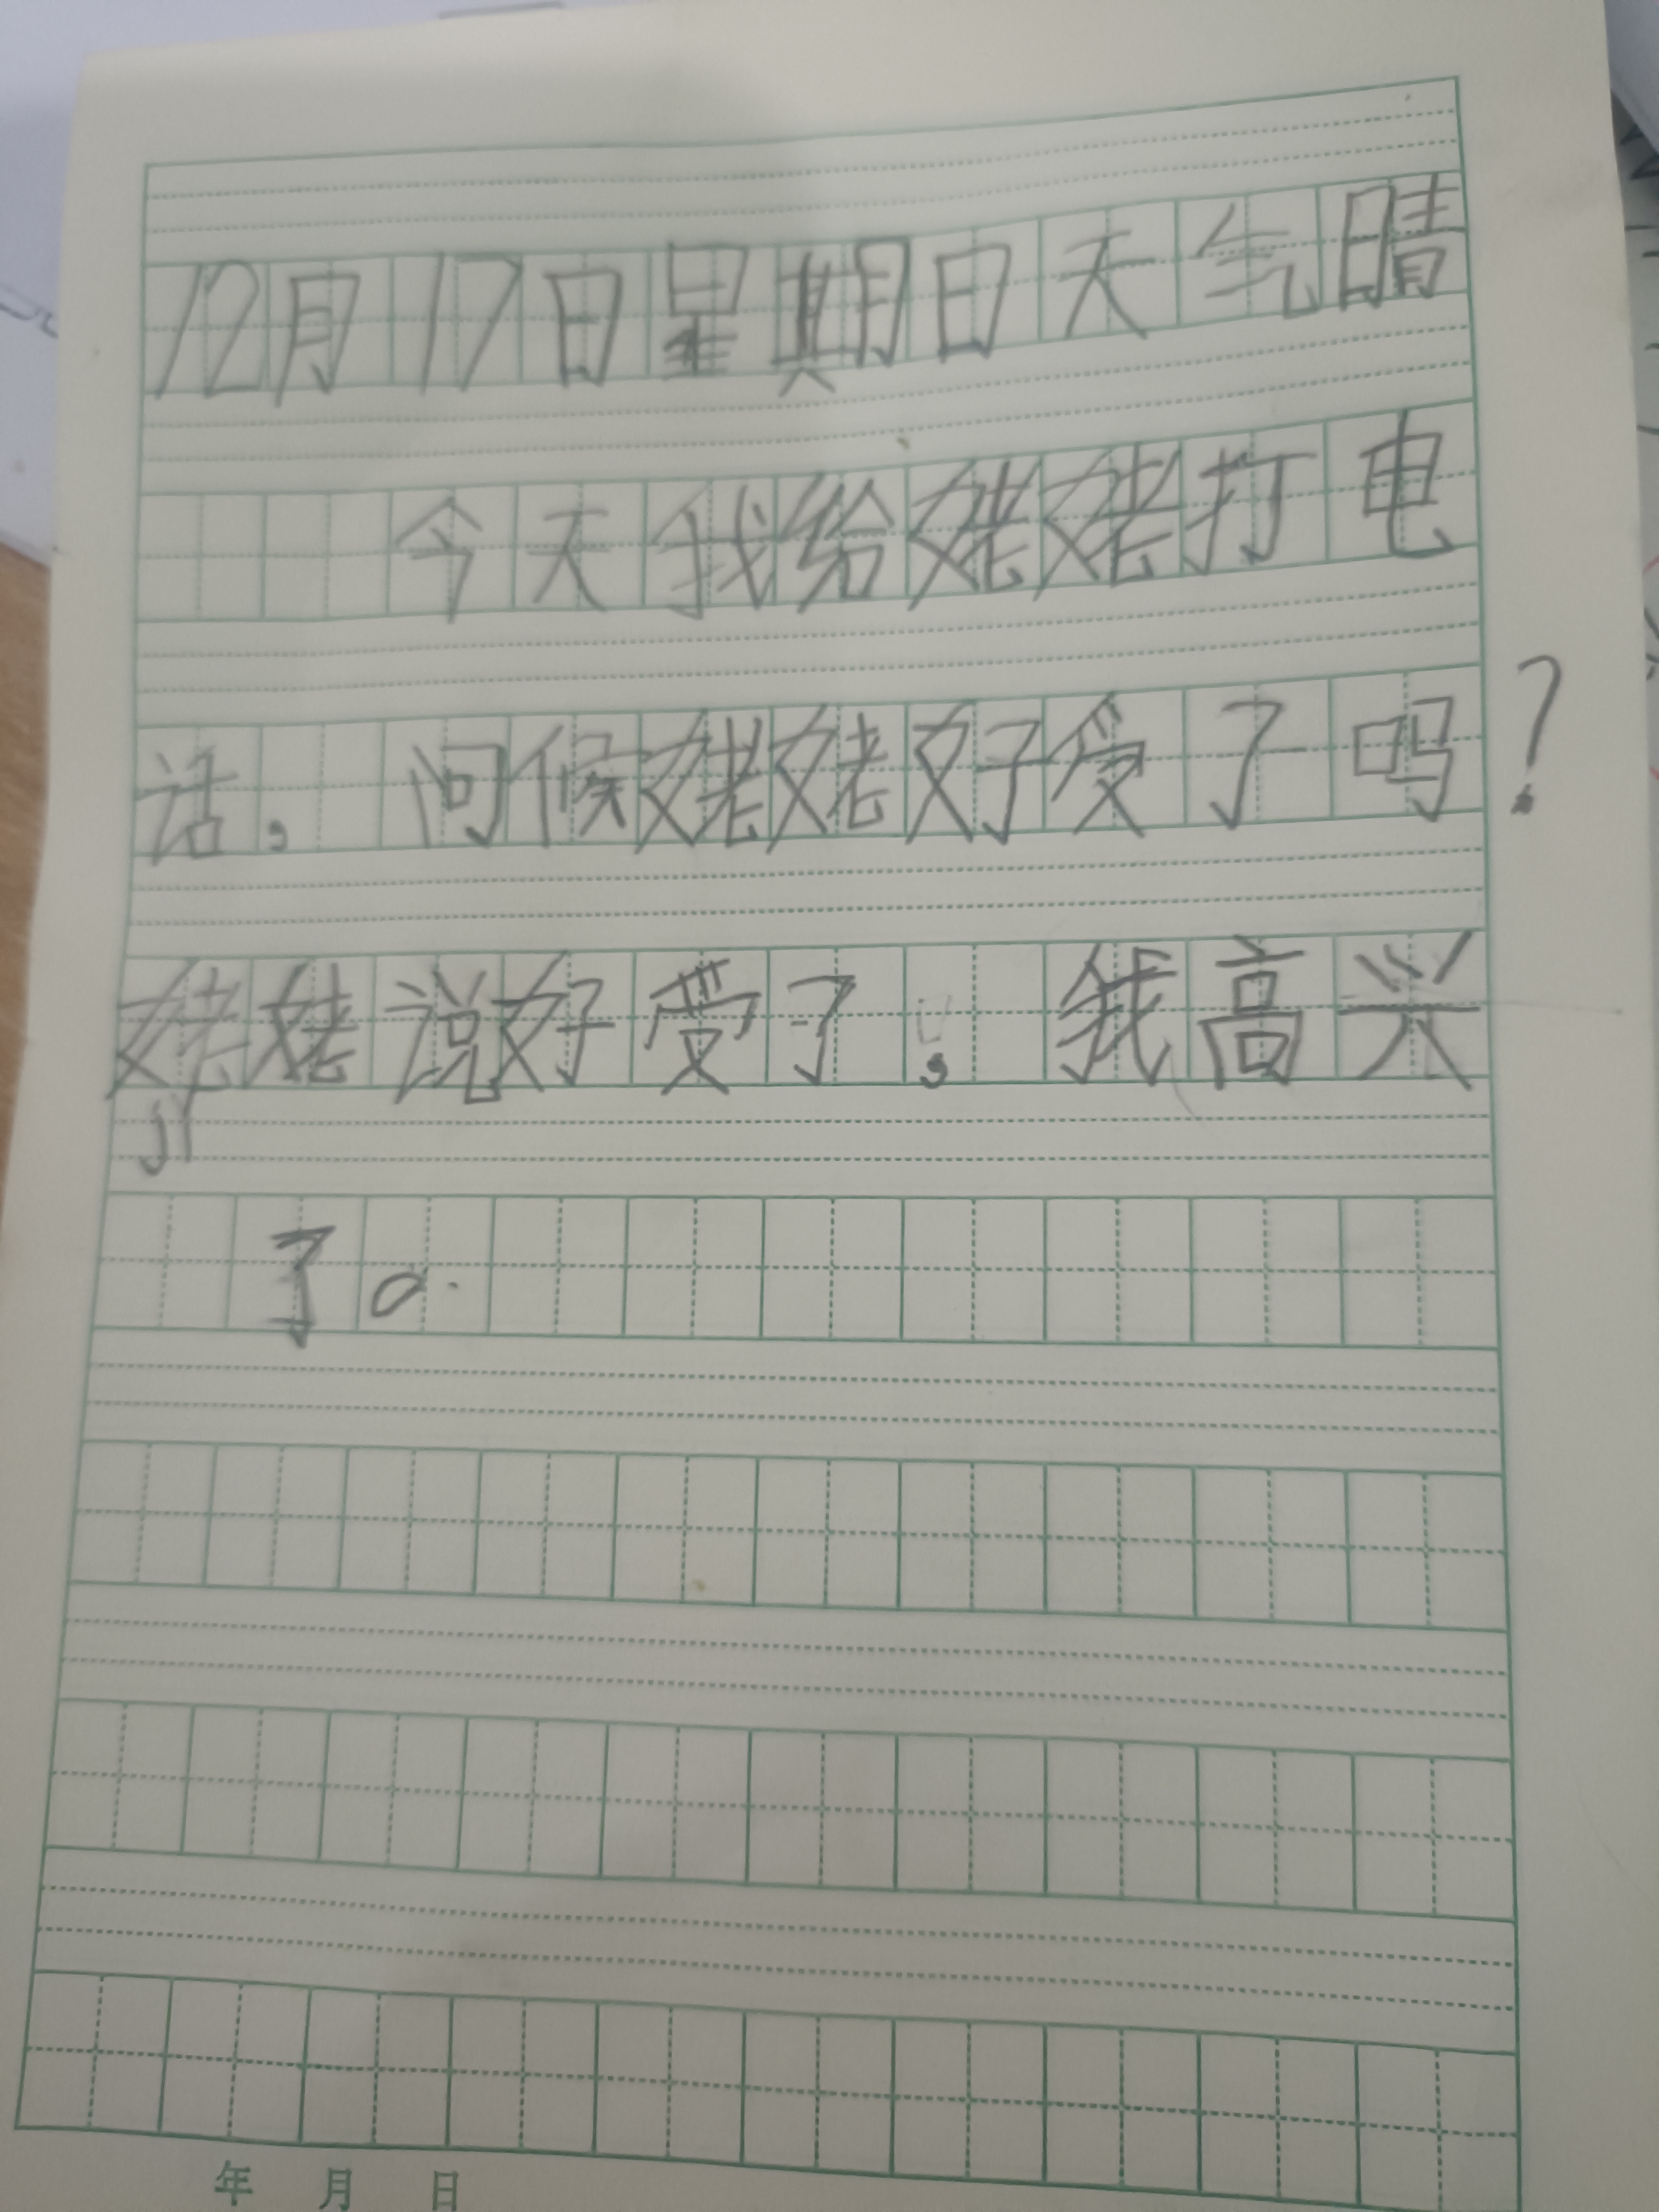 12月17日星期日天气晴
今天我给姥姥打电
话,问候姥姥好受了吗?
姥姥说好受了,我高兴
jí
了。
年 月 日